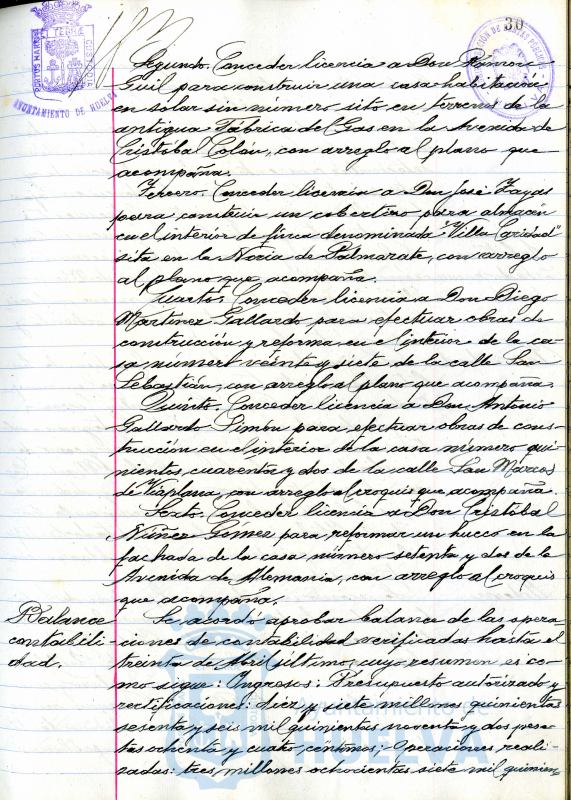 30
AYUNTAMIENTO DE HUELVA
Segundo. Conceder licencia a Don Ramon
Guil para construir una casa habitación
en solar sin número sito en terrenos de la
antigua Fábrica del Gas en la Avenida de
Cristóbal Colón, con arreglo al plano que
acompaña.
Tercero. Conceder licencia a Don José Zayas
para construir un cobertizo para almacén
en el interior de finca denominada "Villa Caridad"
sita en la Noria de Palmarate, con arreglo
al plano que acompaña.
Cuarto. Conceder licencia a Don Diego
Martinez Gallardo para efectuar obras de
construcción y reforma en el interior de la ca-
sa número veinte y siete de la calle San
Sebastián, con arreglo al plano que acompaña.
Quinto. Conceder licencia a Don Antonio
Gallardo Limón para efectuar obras de cons-
trucción en el interior de la casa número qui-
nientos cuarenta y dos de la calle San Marcos
de Viaplana, con arreglo al croquis que acompaña.
Sexto. Conceder licencia a Don Cristóbal
Núñez Gómez para reformar un hueco en la
fachada de la casa número setenta y dos de la
Avenida de Alemania, con arreglo al croquis
que acompaña.
Balance
contabili-
dad.
Se acordó aprobar balance de las opera-
ciones de contabilidad verificadas hasta el
treinta de Abril último, cuyo resumen es co-
mo sigue: Ingresos: Presupuesto autorizado y
rectificaciones: diez y siete millones quinientas
sesenta y seis mil quinientas noventa y dos pese-
tas ochenta y cuatro céntimos; Operaciones reali-
zadas: tres millones ochocientas siete mil quinien-
Ayuntamiento de
HUELVA